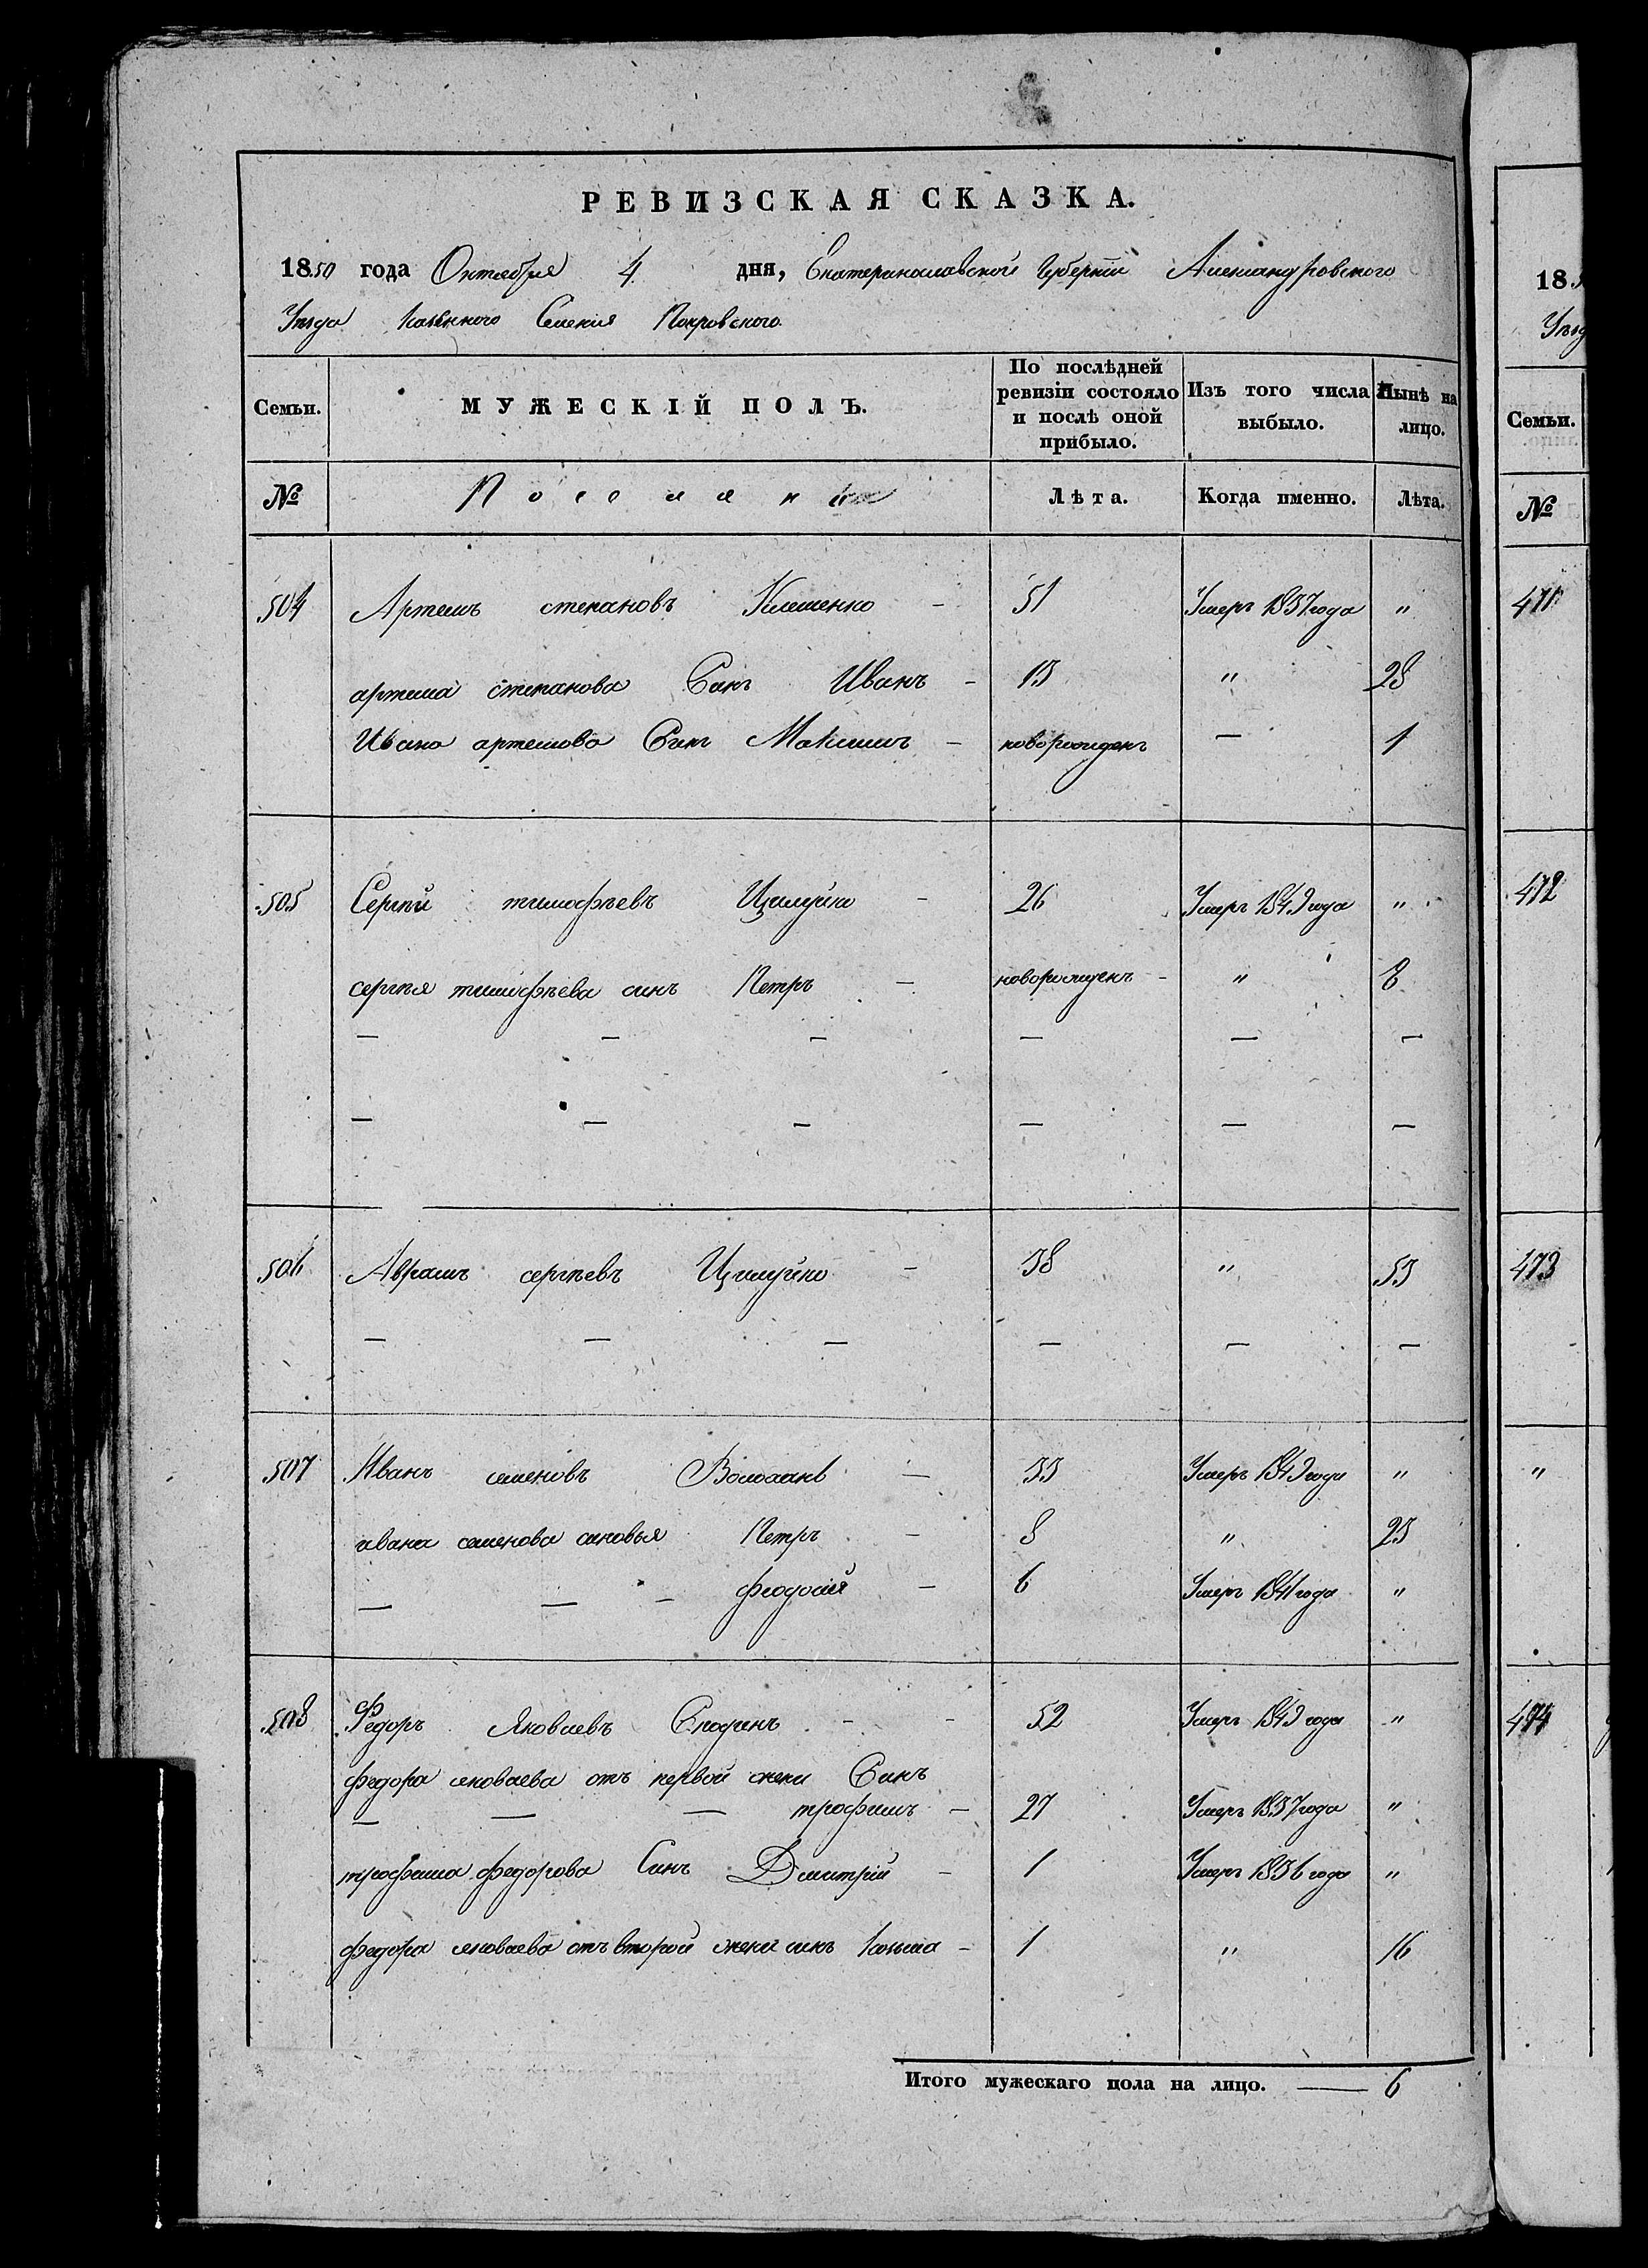 РЕВИЗСКАЯ СКАЗКА.
1850 года Октября 4 дня, Екатеринославской Губернiи Александровского
Уѣзда Казенного Селенiя Покровского
Семьи. МУЖЕСКIЙ ПОЛЪ. По послѣдней ревизiи состояло и послѣ оной прибыло. Изъ того числа выбыло. Нынѣ на лицо.
№ Поселяни Лѣта. Когда именно. Лѣта.
504 Артемъ степановъ Клименко – 51 Умеръ 1837 года "
артема степанова Синъ Иванъ – 13 " 28
Ивана артемова Синъ Максимъ – новорожденъ — 1
505 Сергѣй тимофѣевъ – 26 Умеръ 1849 года "
сергѣя тимофѣева синъ Петръ – новорожденъ – " 8
— — — — — —
— — — — — —
506 Аврамъ сергѣевъ – 38 " 53
— — — — — —
507 Иванъ семеновъ — 33 Умеръ 1849 года "
ивана семенова синовья Петръ – 8 " 23
— — – – 6 Умеръ 1841 года "
508 Федоръ Яковлевъ – – 52 Умеръ 1849 года "
федора яковлева отъ первой жени Синъ
— — — трофимъ – 27 Умеръ 1837 года "
трофима федорова Синъ Дмитрiй – 1 Умеръ 1836 года "
федора яковлева отъ второй жени синъ козьма – 1 " 16
Итого мужескаго пола на лицо. — 6
18
Уѣзд
Семьи.
№
471
472
473
"
474